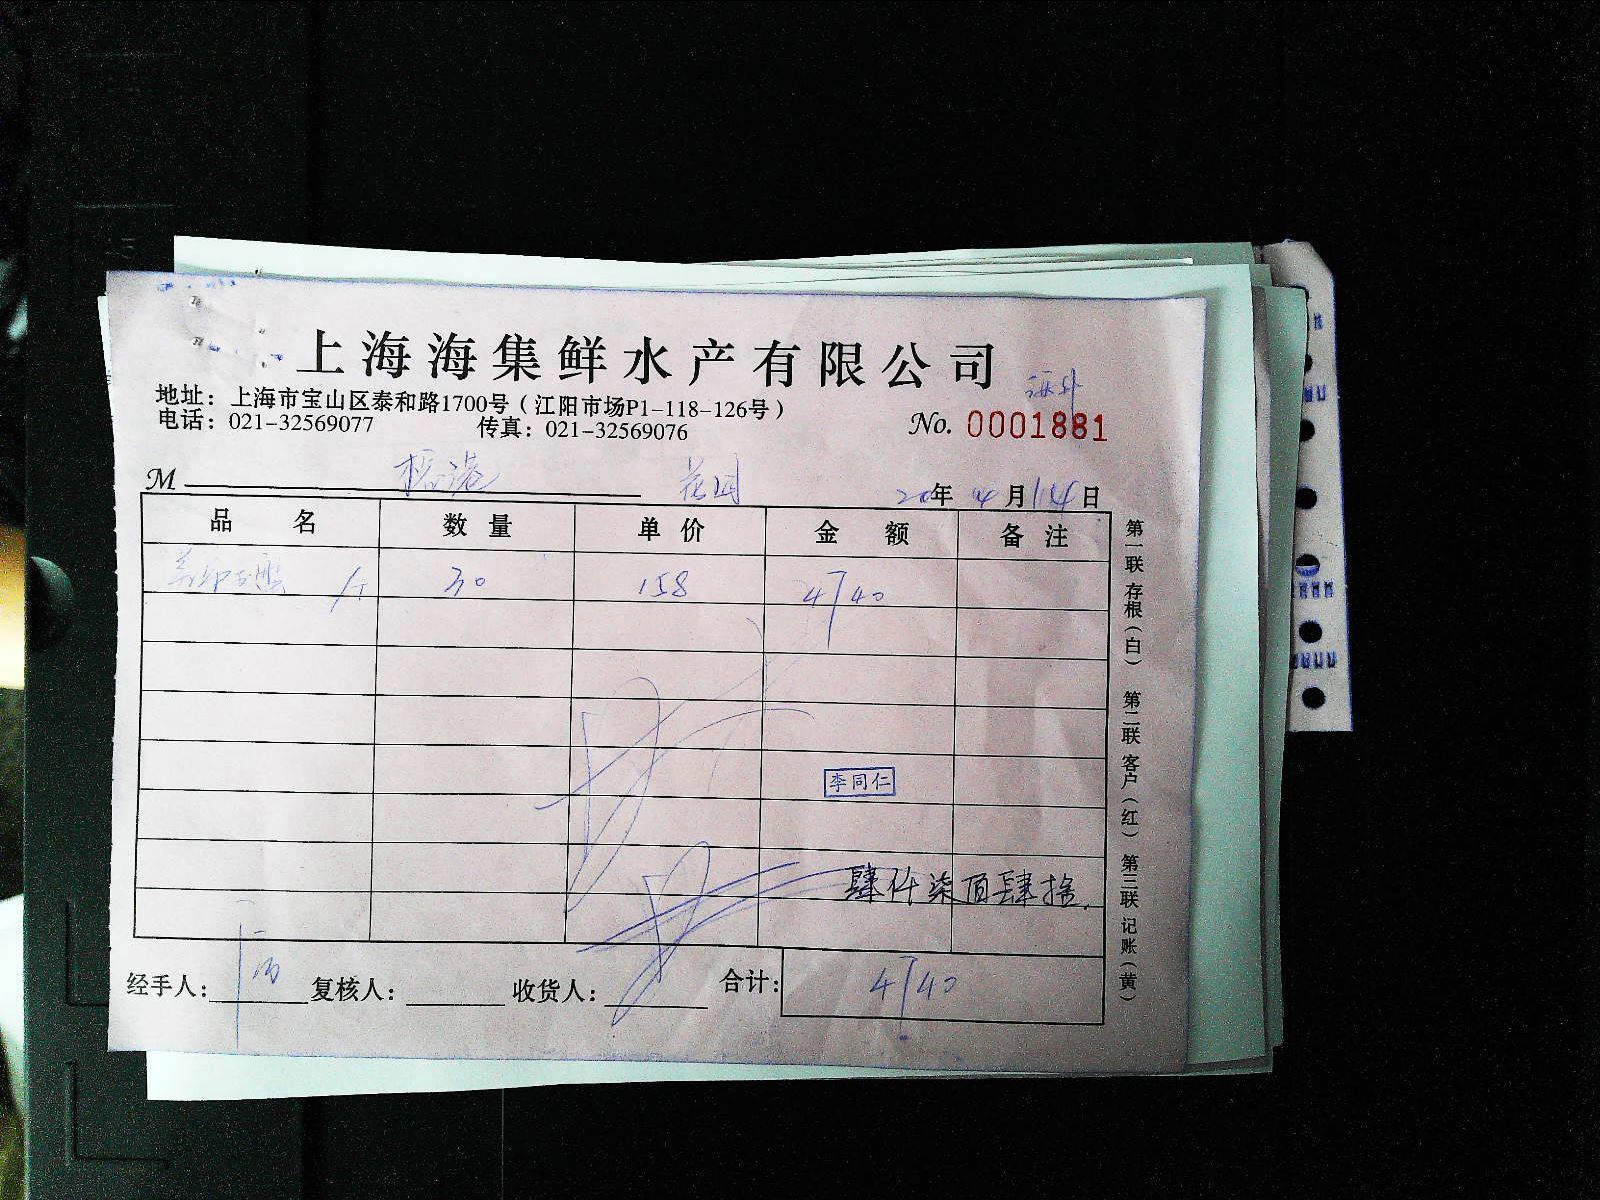 上海海集鲜水产有限公司
地址：上海市宝山区泰和路1700号（江阳市场P1-118-126号）
电话：021-32569077 传真：021-32569076
No. 0001881
M 花园 20年4月14日
品名 数量 单价 金额 备注
30 158 4740
李同仁
肆仟柒佰肆拾.
经手人： 复核人： 收货人： 合计： 4740
第一联存根（白） 第二联客户（红） 第三联记账（黄）